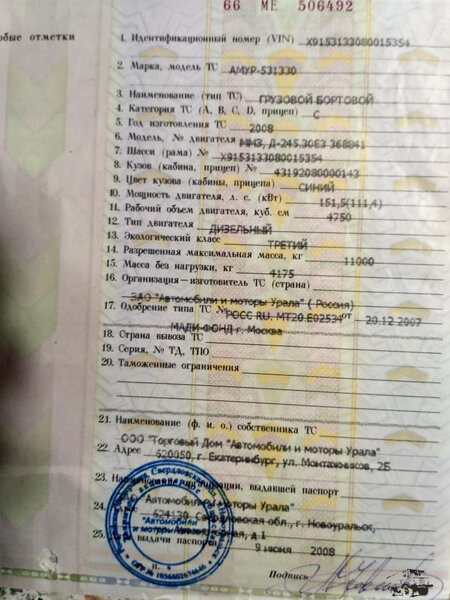 66 МЕ 506492
обые отметки
1. Идентификационный номер (VIN) X9153133080015354
2. Марка, модель ТС АМУР-531330
3. Наименование (тип ТС) ГРУЗОВОЙ БОРТОВОЙ
4. Категория ТС (А, В, С, D, прицеп) С
5. Год изготовления ТС 2008
6. Модель, № двигателя ММЗ, Д-245.30Е3 368841
7. Шасси (рама) № X9153133080015354
8. Кузов (кабина, прицеп) № 43192080000143
9. Цвет кузова (кабины, прицепа) СИНИЙ
10. Мощность двигателя, л. с. (кВт) 151,5(111,4)
11. Рабочий объем двигателя, куб. см 4750
12. Тип двигателя ДИЗЕЛЬНЫЙ
13. Экологический класс ТРЕТИЙ
14. Разрешенная максимальная масса, кг 11000
15. Масса без нагрузки, кг 4175
16. Организация—изготовитель ТС (страна)
ЗАО "Автомобили и моторы Урала" ( Россия)
17. Одобрение типа ТС № РОСС RU. МТ20.Е02534 от 20.12.2007
МАДИ-ФОНД г. Москва
18. Страна вывоза ТС
19. Серия, № ТД, ТПО
20. Таможенные ограничения
21. Наименование (ф. и. о.) собственника ТС
ООО "Торговый Дом "Автомобили и моторы Урала"
22. Адрес 620050, г. Екатеринбург, ул. Монтажников, 2Б
23. Наименование организации, выдавшей паспорт
Автомобили и моторы Урала"
24. Адрес 624130, Свердловская обл., г. Новоуральск,
25. Дата выдачи паспорта
9 июня 2008
Подпись
"Автомобили и моторы